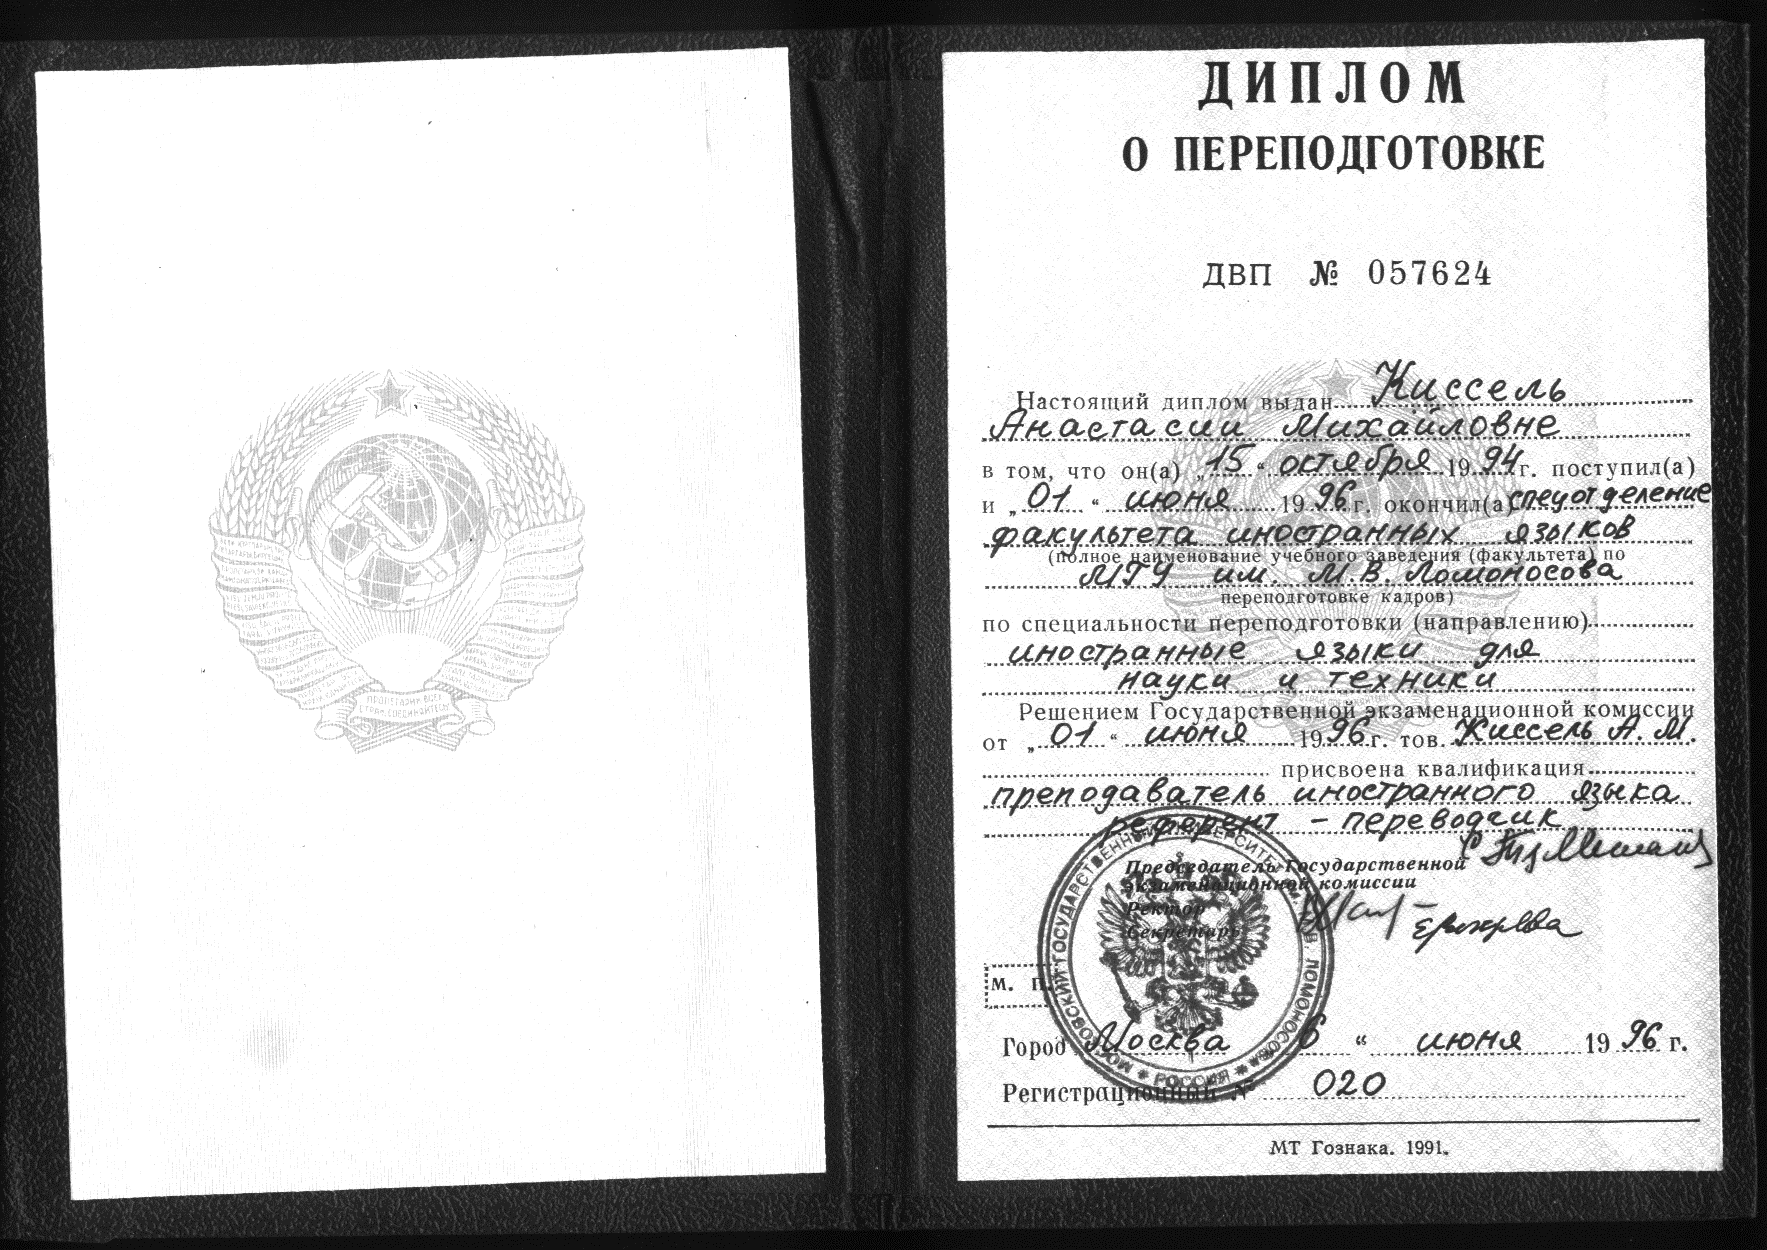 ПРОЛЕТАРИИ ВСЕХ
СТРАН, СОЕДИНЯЙТЕСЬ!
ДИПЛОМ
О ПЕРЕПОДГОТОВКЕ
ДВП № 057624
Настоящий диплом выдан Киссель
Анастасии Михайловне
в том, что он(а) „15“ октября 1994 г. поступил(а)
и „01“ июня 1996 г. окончил(а) спецотделение
факультета иностранных языков
(полное наименование учебного заведения (факультета) по
МГУ им. М.В. Ломоносова
переподготовке кадров)
по специальности переподготовки (направлению)
иностранные языки для
науки и техники
Решением Государственной экзаменационной комиссии
от „01“ июня 1996 г. тов. Киссель А. М.
присвоена квалификация
преподаватель иностранного языка
референт - переводчик
Председатель Государственной
экзаменационной комиссии
Ректор
Секретарь
М. П.
МОСКОВСКИЙ ГОСУДАРСТВЕННЫЙ УНИВЕРСИТЕТ ИМ. М.В. ЛОМОНОСОВА
* РОССИЯ *
Город Москва 6 “ июня 1996 г.
Регистрационный № 020
МТ Гознака. 1991.